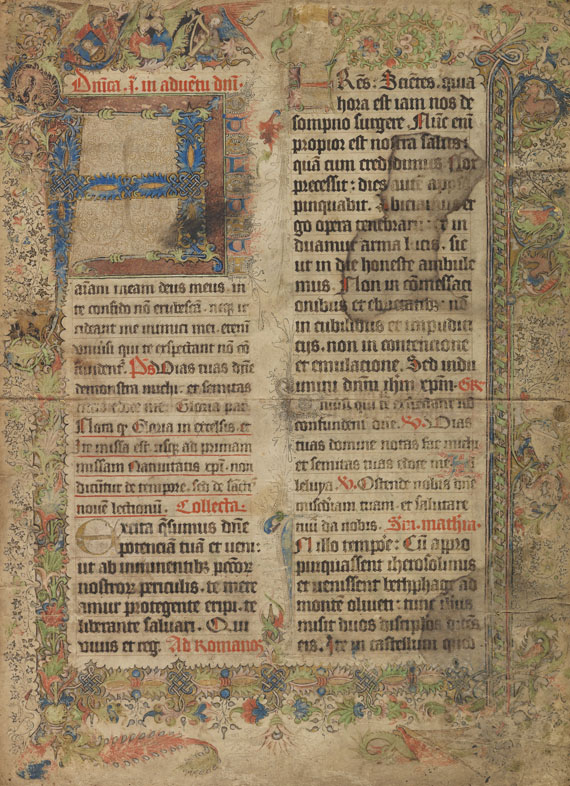 Dnica. i. in adventu dni.
A
d te levavi
animam meam deus meus. in
te confido nõ erubescã. neqʒ ir
rideant me inimici mei. etenĩ
universi qui te exspectant nõ cõ
fundent̃. Ps Vias tuas dñe
demonstra michi. et semitas
Gloria pat
Nota qʒ Gloria in excelsis. et
Ite missa est. usqʒ ad primam
missam Nativitatis xp̃i. non
dicũtur de tempore. seu de sãcti
novẽ lectionũ. Collecta.
Excita q̃sumus dñe
potenciã tuã et veni:
ut ab iminentibʒ pctõr
nostror periculis. te mere
amur protegente eripi. te
liberante salvari. Qui
vivis et reg̃. Ad Romanos
FRẽs: Scientes. quia
hora est iam nos de
sompno surgere. Nũc enĩ
propior est nostra salus:
quã cum credidimus. Nox
precessit: dies autẽ appro
pinquabit. Abiciamus er
go opera tenebrarũ: et in
duamur arma lucis. sic
ut in die honeste ambule
mus. Non in cõmessaci
onibus et ebrietatibʒ: nõ
in cubilibus et impudici
ciis. non in contencione
et emulacione. Sed indu
imini dñm ihm xpm̃. Gr̃
universi qui te exspectant nõ
confundent̃ dñe. V Vias
tuas domine notas fac michi
et semitas tuas edoce me. Al
leluya. V Ostende nobis dñe
misc̃diam tuam. et salutare
tuũ da nobis. Sc̃m mathiã.
In illo tempõe: Cũ appro
pinquassent iherosolimis
et venissent bethphage ad
montẽ oliveti: tunc ihus
misit duos discip̃los dicẽs
eis. Ite in castellum quod